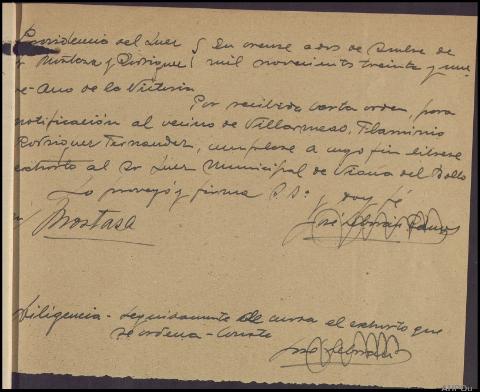 Providencia del Juez } En Orense a dos de Octubre de
Sr Mostaza y Rodriguez { mil novecientos treinta y nue-
ve - Año de la Victoria
Por recibida carta orden, para
notificación al vecino de Villarmeao, Flaminio
Rodriguez Fernandez, cumplase a cuyo fin librese
exhorto al Sr Juez Municipal de Viana del Bollo
Lo proveyó y firma S.Sª, doy fé
Mostaza
José
Diligencia - Seguidamente se cursa el exhorto que
se ordena - Consta
José
AHPOu